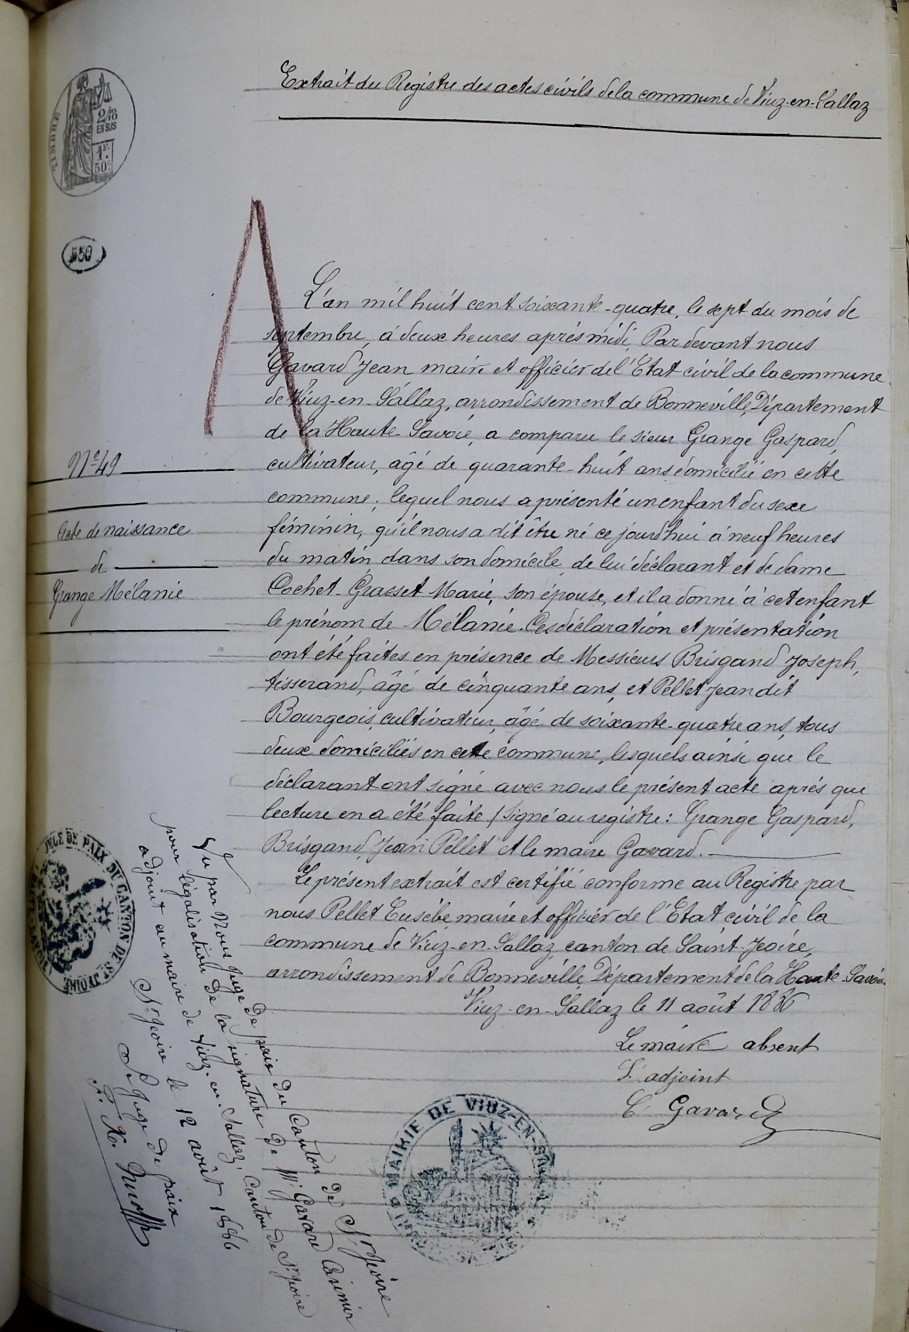 Extrait du Registre des actes civils de la commune de Viuz-en-Sallaz
TIMBRE
2/10
EN SUS
1F
50c
550
L'an mil huit cent soixante-quatre, le sept du mois de
septembre, à deux heures après midi, Par devant nous
Gavard Jean maire et officier de l'Etat civil de la commune
de Viuz-en-Sallaz, arrondissement de Bonneville, Département
de la Haute-Savoie, a comparu le sieur Grange Gaspard,
cultivateur, âgé de quarante-huit ans domicilié en cette
commune; lequel nous a présenté un enfant du sexe
féminin, qu'il nous a dit être né ce jourd'hui à neuf heures
du matin dans son domicile, de lui déclarant et de dame
Cochet Grasset Marie, son épouse, et il a donné à cet enfant
le prénom de Mélanie. Ces déclaration et présentation
ont été faites en présence de Messieurs Brigand Joseph,
tisserand, âgé de cinquante ans, et Pellet Jean dit
Bourgeois, cultivateur, âgé de soixante-quatre ans, tous
deux domiciliés en cette commune, lesquels ainsi que le
déclarant ont signé avec nous le présent acte après que
lecture en a été faite / Signé au registre: Grange Gaspard,
Brisgand, Jean Pellet et le maire Gavard.
Le présent extrait est certifié conforme au Registre par
nous Pellet Eusèbe maire et officier de l'Etat civil de la
commune de Viuz-en-Sallaz canton de Saint-Jeoire,
arrondissement de Bonneville, Département de la Haute-Savoie.
Viuz-en-Sallaz le 11 août 1886
Le maire absent
L'adjoint
C. Gavard
N° 49
Acte de naissance
de
Grange Mélanie
Vu par Nous Juge de paix du Canton de St Jeoire
pour légalisation de la signature de M. Gavard Casimir
adjoint au maire de Viuz-en-Sallaz, Canton de St Jeoire
St Jeoire le 12 août 1886
Le Juge de paix
JUGE DE PAIX DU CANTON DE ST JEOIRE
MAIRIE DE VIUZ-EN-SALLAZ